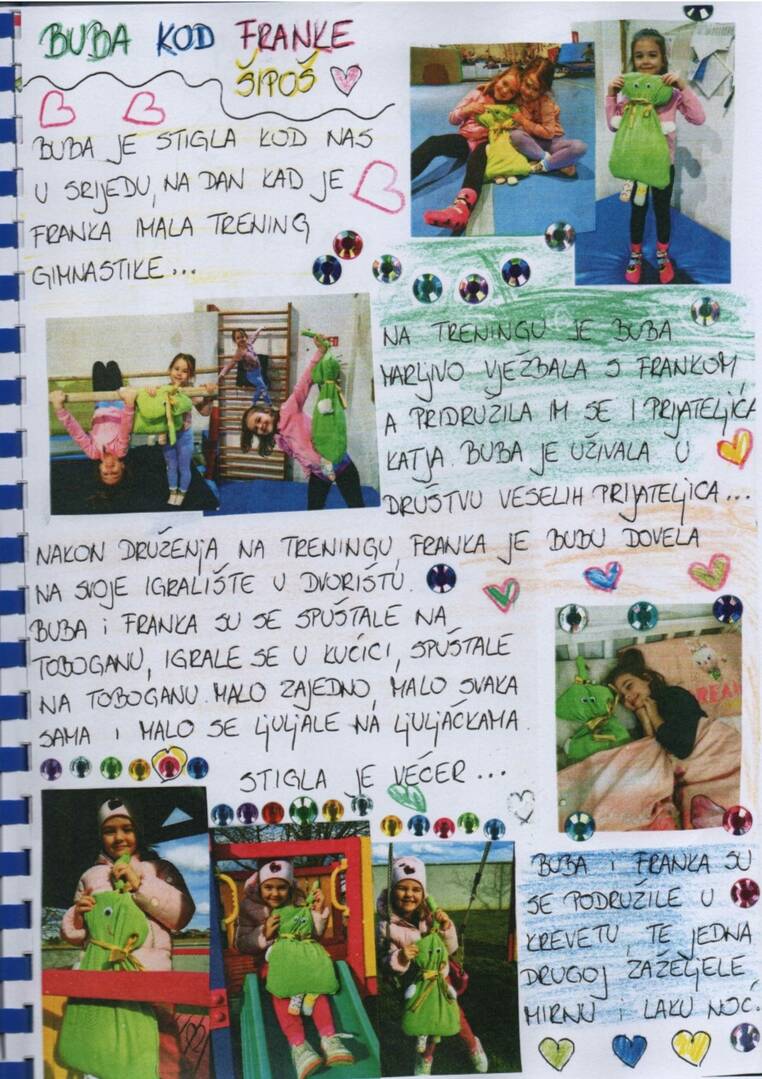 BUBA KOD FRANKE
ŠIPOŠ
BUBA JE STIGLA KOD NAS
U SRIJEDU, NA DAN KAD JE
FRANKA IMALA TRENING
GIMNASTIKE...
NA TRENINGU JE BUBA
MARLJIVO VJEŽBALA S FRANKOM,
A PRIDRUŽILA IM SE I PRIJATELJICA
KATJA. BUBA JE UŽIVALA U
DRUŠTVU VESELIH PRIJATELJICA...
NAKON DRUŽENJA NA TRENINGU, FRANKA JE BUBU DOVELA
NA SVOJE IGRALIŠTE U DVORIŠTU.
BUBA I FRANKA SU SE SPUŠTALE NA
TOBOGANU, IGRALE SE U KUĆICI, SPUŠTALE
NA TOBOGANU. MALO ZAJEDNO, MALO SVAKA
SAMA I MALO SE LJULJALE NA LJULJAČKAMA.
STIGLA JE VEČER...
BUBA I FRANKA SU
SE PODRUŽILE U
KREVETU, TE JEDNA
DRUGOJ ZAŽELJELE
MIRNU I LAKU NOĆ.